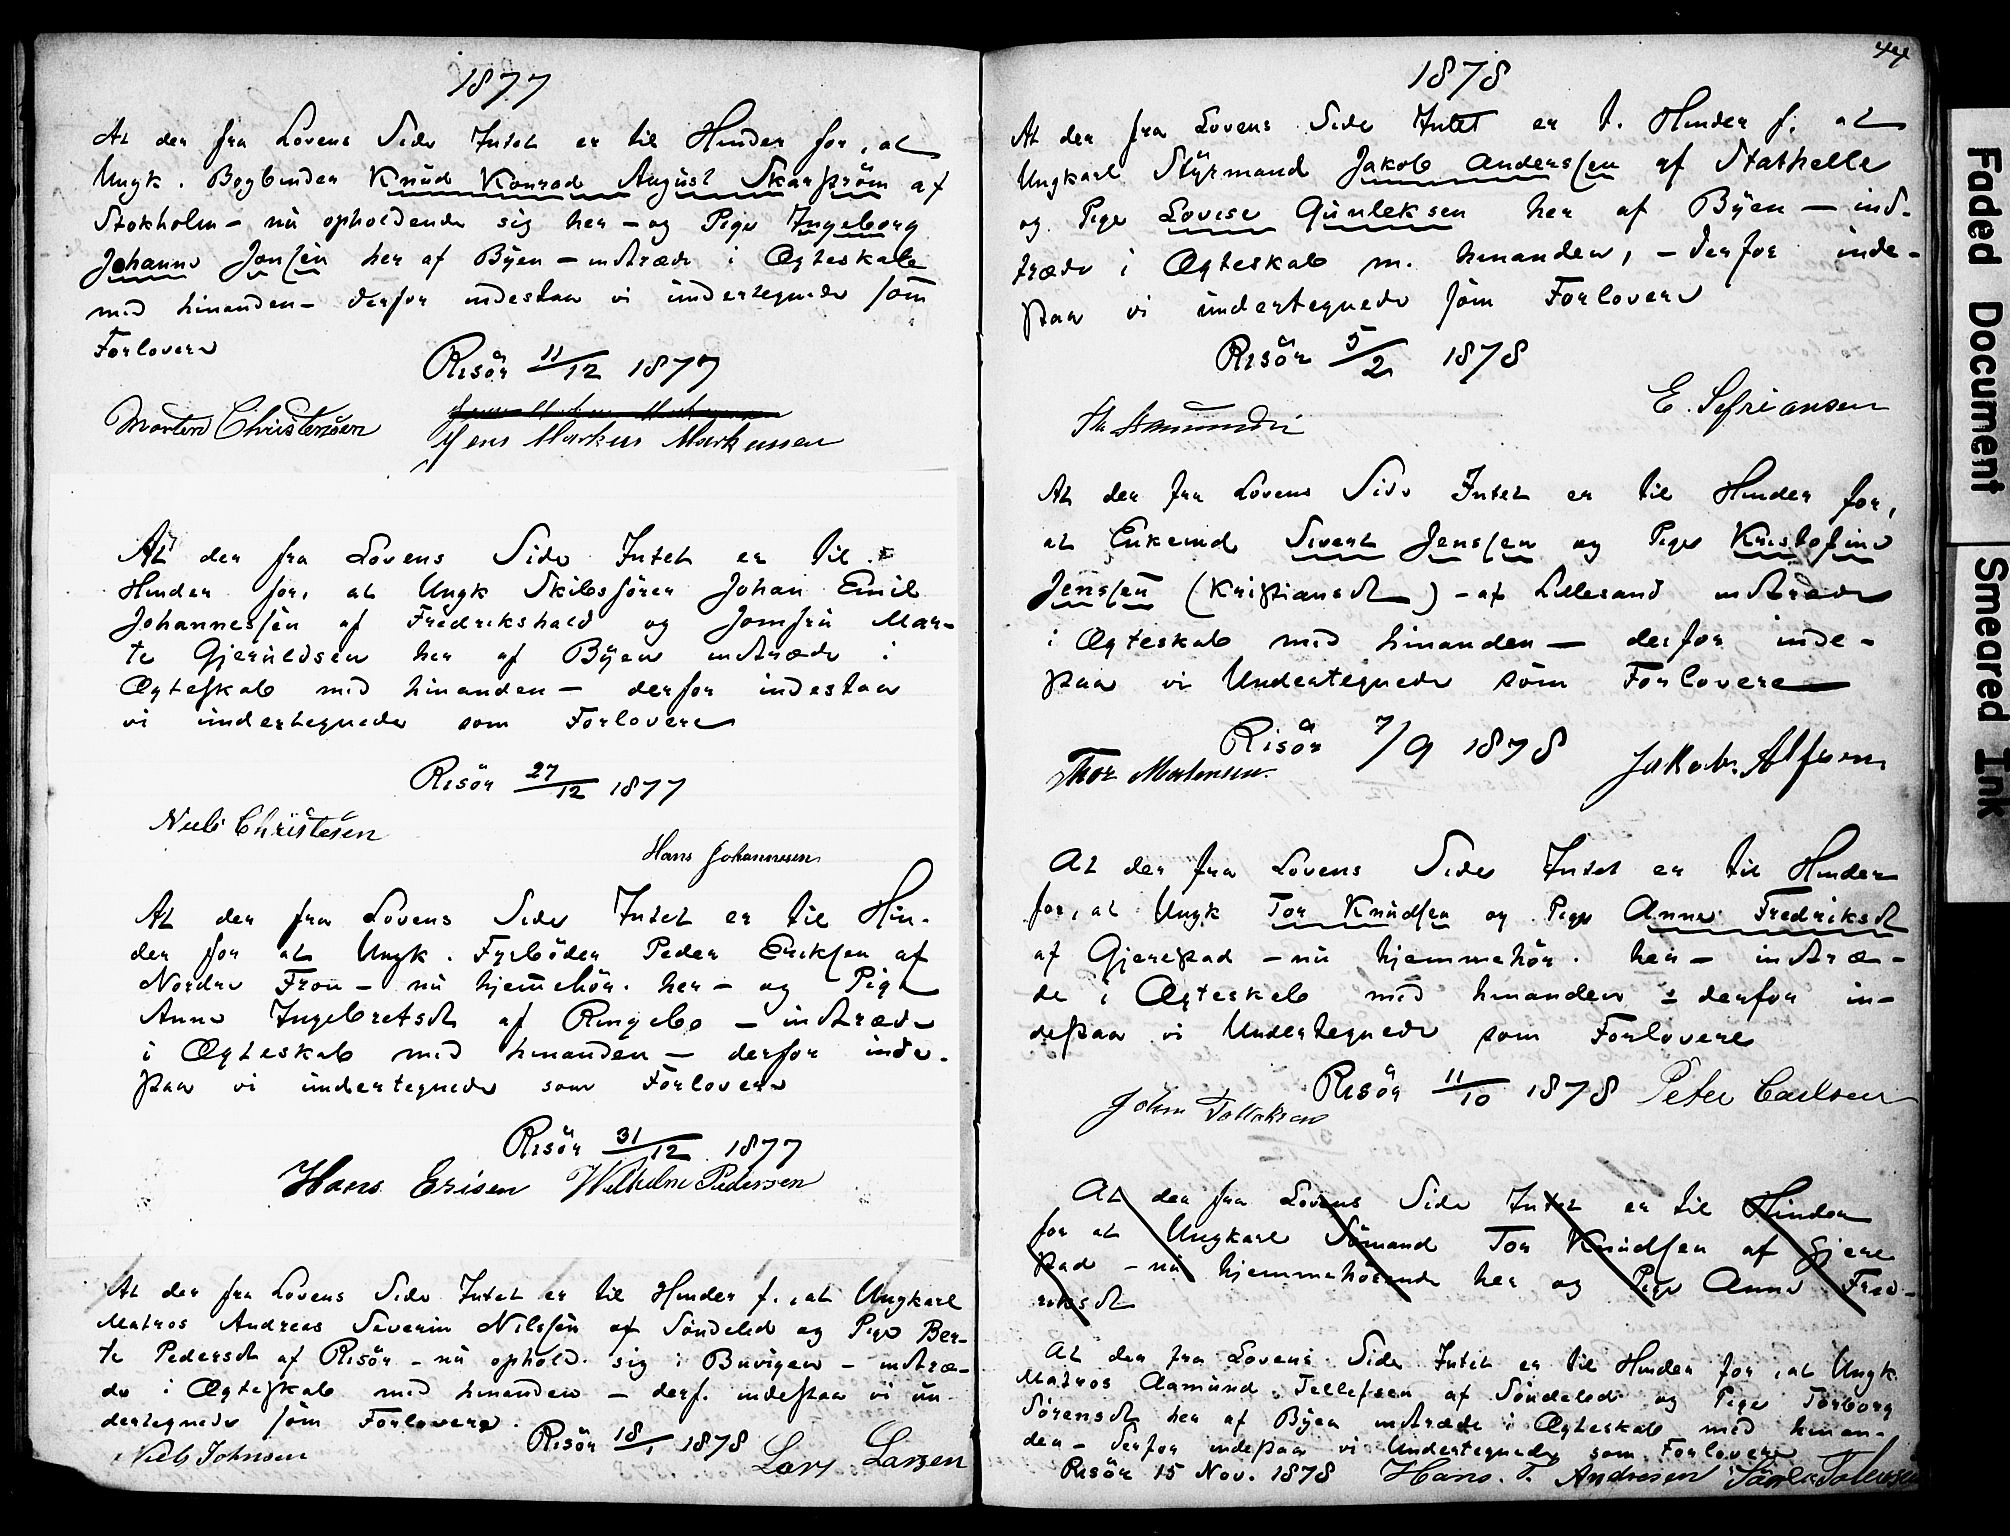 1877
At der fra Lovens Side Intet er til Hinder for, at
Ungk. Bogbinder Knud Konrad August Skarström af
Stokholm – nu opholdende sig her – og Pige Ingeborg
Johanne Jonsen her af Byen – indtræde i Ægteskab
med hinanden – derfor indestaa vi undertegnede som
Forlovere
Risör 11/12 1877
Morten Christensen
Jens Markus Markussen
At der fra Lovens Side Intet er til
Hinder for, at Ungk Skibsförer Johan Emil
Johannessen af Fredrikshald og Jomfru Mar-
te Gjeruldsen her af Byen indtræde i
Ægteskab med hinanden – derfor indestaa
vi undertegnede som Forlovere
Risör 27/12 1877
Niels Christesen
Hans Johannesen
At der fra Lovens Side Intet er til Hin-
der for at Ungk. Fyrböder Peder Eriksen af
Nordre Fron – nu hjemmehör. her – og Pige
Anne Ingebretsdt af Ringebo – indtræde
i Ægteskab med hinanden – derfor inde-
staa vi undertegnede som Forlovere
Risör 31/12 1877
Hans Erisen Wilhelm Pedersen
At der fra Lovens Side Intet er til Hinder f., at Ungkarl
Matros Andreas Severin Nilssen af Söndeled og Pige Ber-
te Pedersdt af Risör – nu ophold. sig i Buvigen – indtræ-
de i Ægteskab med hinanden – derf. indestaa vi un-
dertegnede som Forlovere.
Risör 18/1 1878
Niels Johnsen
Lars Larsen
44
1878
At der fra Lovens Side Intet er t. Hinder f. at
Ungkarl Styrmand Jakob Anderssen af Stathelle
og Pige Lovise Gunleksen her af Byen – ind-
træde i Ægteskab m. hinanden, – derfor inde-
staa vi undertegnede som Forlovere
Risör 5/2 1878
E. Sefriansen
At der fra Lovens Side Intet er til Hinder for,
at Enkemd Sivert Jenssen og Pige Kristofine
Jenssen (Kristiansdt) – af Lillesand indtræde
i Ægteskab med hinanden – derfor inde-
staa vi Undertegnede som Forlovere
Risör 7/9 1878
Thor Mortensen.
Jakob
At der fra Lovens Side Intet er til Hinder
for, at Ungk Tor Knudsen og Pige Anne Fredriksdt
af Gjerestad – nu hjemmehör. her – indtræ-
de i Ægteskab med hinanden – derfor in-
destaa vi Undertegnede som Forlovere
Risör 11/10 1878 Peter Carlsen
John Tellefsen
At der fra Lovens Side Intet er til Hinder
for at Ungkarl Sömand Tor Knudsen af Gjere
stad – nu hjemmehörende her og Pige Anne Fred-
riksdt
At der fra Lovens Side Intet er til Hinder for, at Ungk
Matros Aamund Tellefsen af Söndeled og Pige Torborg
Sörensdt her af Byen indtræde i Ægteskab med hinan-
den – derfor indestaa vi Undertegnede som Forlovere
Risör 15 Nov. 1878 Hans. T. Andresen
Faded Document
Smeared Ink